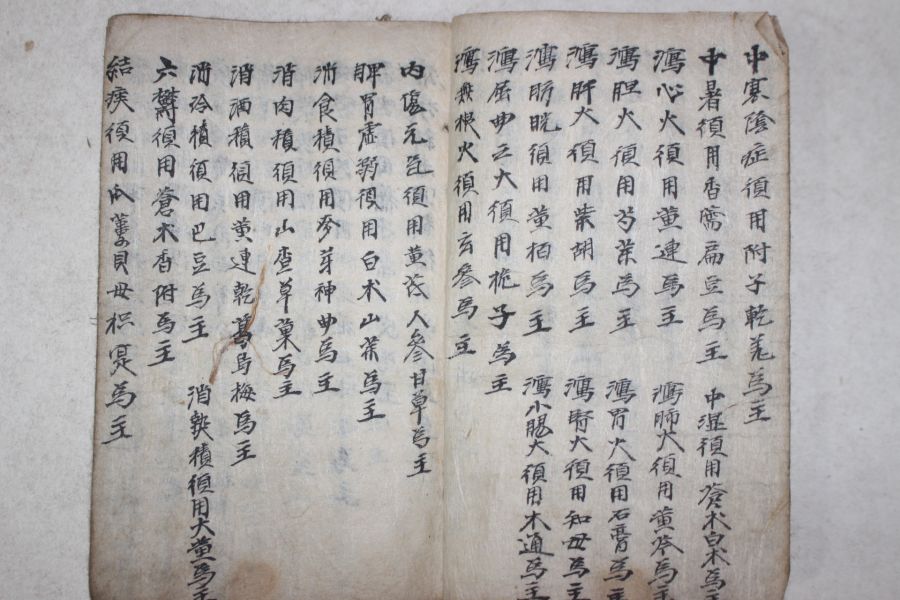 中寒陰症須用附子乾羌為主
中暑須用香薷扁豆為主 中濕須用蒼朮白朮為主
瀉心火須用黄連為主 瀉肺火須用黄芩為主
瀉胆火須用芍藥為主 瀉胃火須用石膏為主
瀉肝火須用柴胡為主 瀉腎火須用知母為主
瀉膀胱須用黄栢為主 瀉小腸火須用木通為主
瀉屈曲之火須用梔子為主
瀉無根火須用玄參為主
內傷元氣須用黄芪人參甘草為主
脾胃虚弱須用白朮山藥為主
消食積須用麥芽神曲為主
消肉積須用山查草菓為主
消酒積須用黄連乾葛烏梅為主
消冷積須用巴豆為主 消熱積須用大黄為主
六鬱須用蒼朮香附為主
結痰須用瓜蔞貝母枳실為主